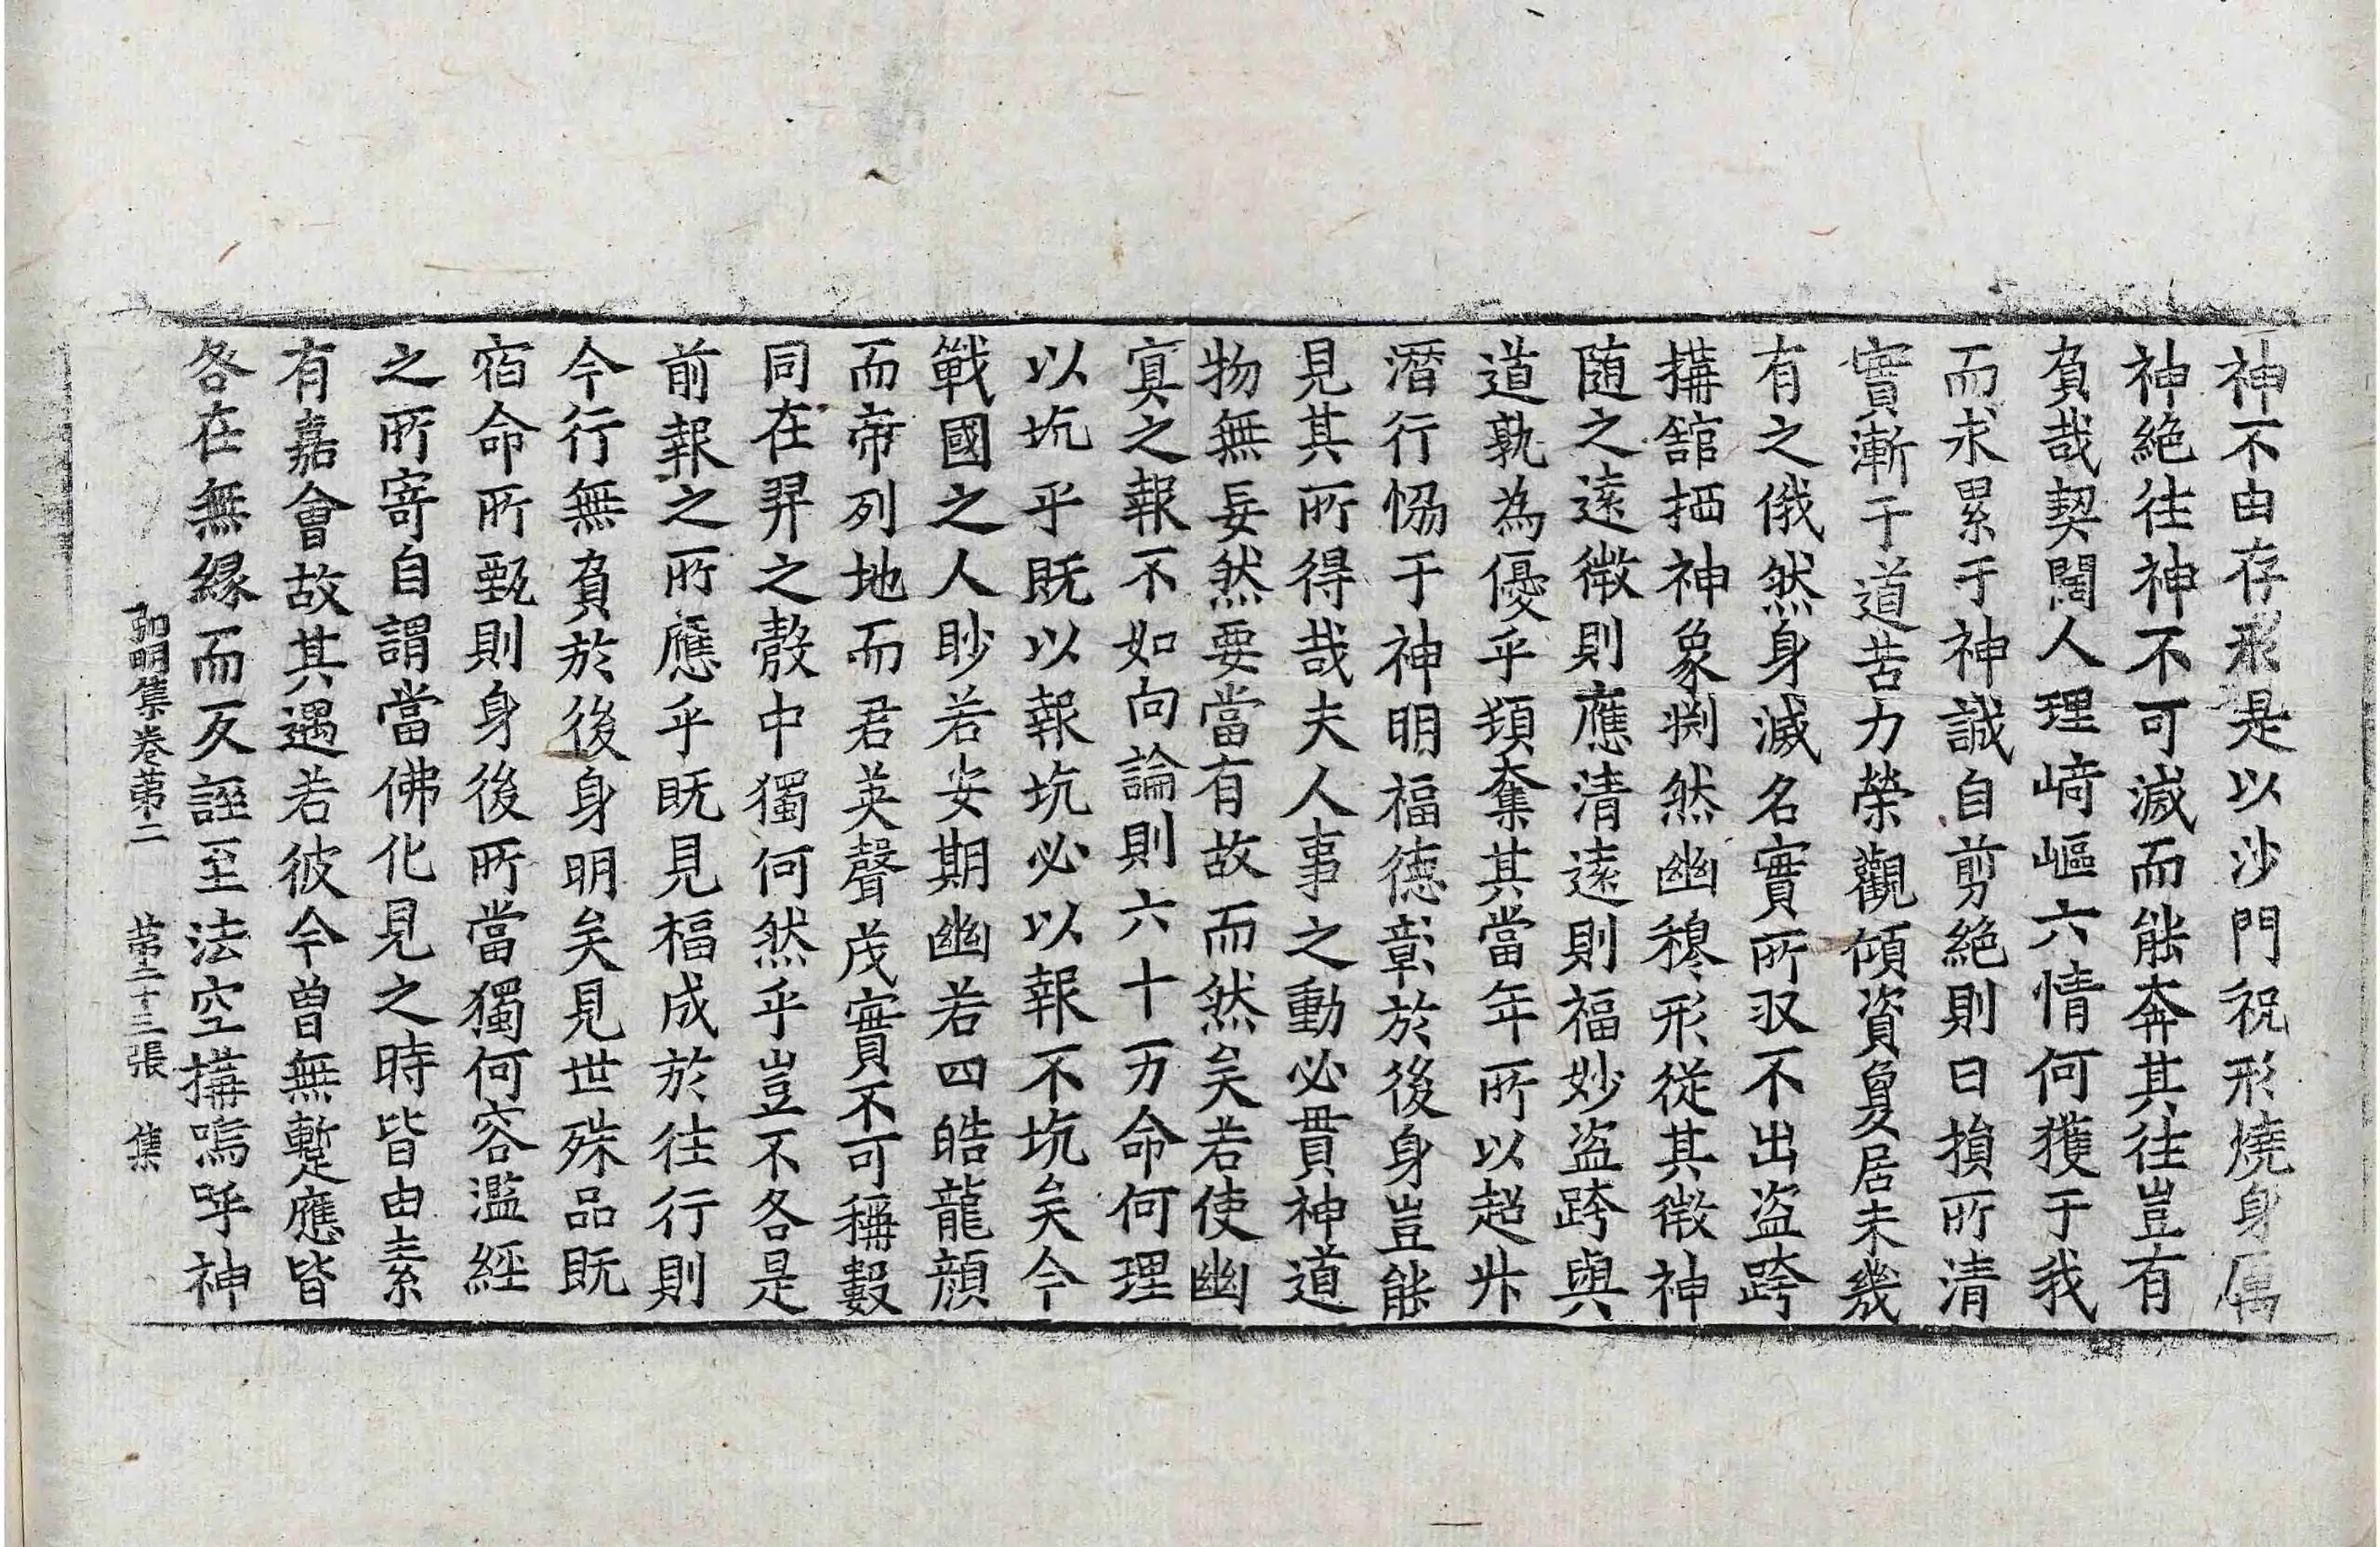 神不由存形是以沙門祝形燒身厲
神絶徃神不可滅而能奔其徃豈有
負哉契闊人理崎嶇六情何獲于我
而求累于神誠自剪絶則日損所清
實漸于道苦力榮觀傾資夐居未幾
有之俄然身滅名實所収不出盗跨
搆館栖神象淵然幽穆形從其微神
随之遠微則應清遠則福妙盗跨與
道孰為優乎頻奪其當年所以超升
潛行恊于神明福德彰於後身豈能
見其所得哉夫人事之動必貫神道
物無妄然要當有故而然矣若使幽
寞之報不如向論則六十万命何理
以坑乎既以報坑必以報不坑矣今
戰國之人眇若安期幽若四皓龍顔
而帝列地而君英聲茂實不可稱數
同在羿之彀中獨何然乎豈不各是
前報之所應乎既見福成於徃行則
今行無負於後身明矣見世殊品既
宿命所甄則身後所當獨何容濫經
之所寄自謂當佛化見之時皆由素
有嘉會故其遇若彼今曽無蹔應皆
各在無縁而反誣至法空搆嗚呼神
弘明集巻苐二 苐二十三張 集